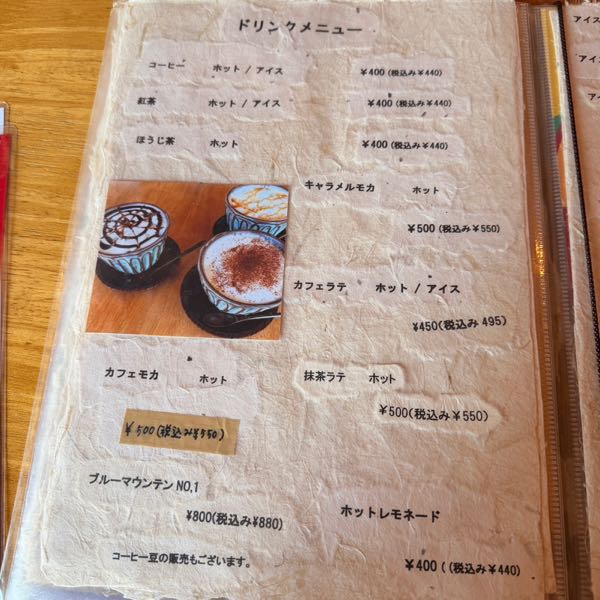 ドリンクメニュー
コーヒー ホット / アイス ¥400 (税込み¥440)
紅茶 ホット / アイス ¥400 (税込み¥440)
ほうじ茶 ホット ¥400 (税込み¥440)
キャラメルモカ ホット
¥500(税込み¥550)
カフェラテ ホット / アイス
¥450(税込み 495)
カフェモカ ホット
¥500(税込み¥550)
抹茶ラテ ホット
¥500(税込み¥550)
ブルーマウンテン NO,1
¥800(税込み¥880)
コーヒー豆の販売もございます。
ホットレモネード
¥400 ( (税込み¥440)
アイス
アイ
アイ